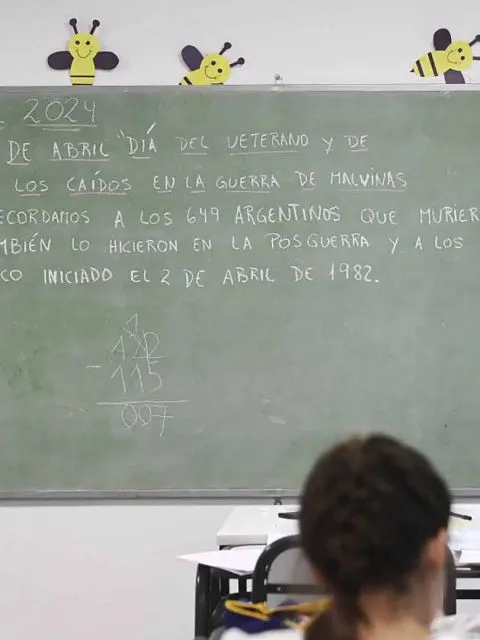 2024
DE ABRIL "DÍA DEL VETERANO Y DE
LOS CAÍDOS EN LA GUERRA DE MALVINAS
ECORDAMOS A LOS 649 ARGENTINOS QUE MURIER
MBIÉN LO HICIERON EN LA POSGUERRA Y A LOS
CO INICIADO EL 2 DE ABRIL DE 1982.
1
122
- 115
007